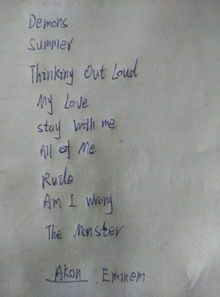 Demons
Summer
Thinking Out Loud
My Love
stay with me
All of Me
Rude
Am I wrong
The Monster
Akon, Eminem